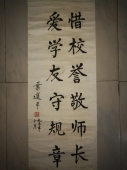 惜校誉敬师长
爱学友守规章